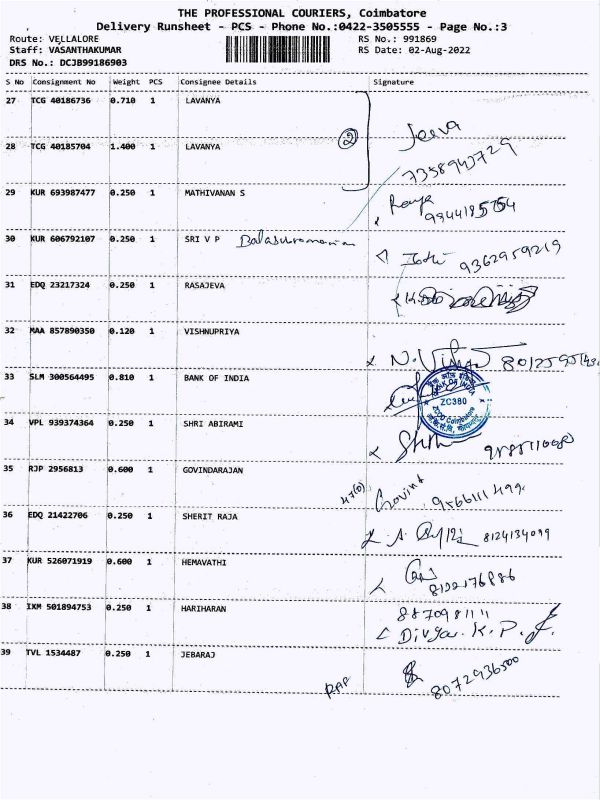 THE PROFESSIONAL COURIERS, Coimbatore
Delivery Runsheet - PCS - Phone No.:0422-3505555 - Page No.:3
Route: VELLALORE RS No.: 991869
Staff: VASANTHAKUMAR RS Date: 02-Aug-2022
DRS No.: DCJB99186903
S No Consignment No Weight PCS Consignee Details Signature
27 TCG 40186736 0.710 1 LAVANYA
② Jeeva
28 TCG 40185704 1.400 1 LAVANYA
7358943729
29 KUR 693987477 0.250 1 MATHIVANAN S
30 KUR 606792107 0.250 1 SRI V P Balasubramanian
9362959219
31 EDQ 23217324 0.250 1 RASAJEVA
32 MAA 857890350 0.120 1 VISHNUPRIYA
33 SLM 300564495 0.810 1 BANK OF INDIA
BANK OF INDIA
ZC380
Coimbatore
34 VPL 939374364 0.250 1 SHRI ABIRAMI
35 RJP 2956813 0.600 1 GOVINDARAJAN
Govind
36 EDQ 21422706 0.250 1 SHERIT RAJA
8124134099
37 KUR 526071919 0.600 1 HEMAVATHI
8122176886
38 IXM 501894753 0.250 1 HARIHARAN
Divya. K. P.
39 TVL 1534487 0.250 1 JEBARAJ
8072936500